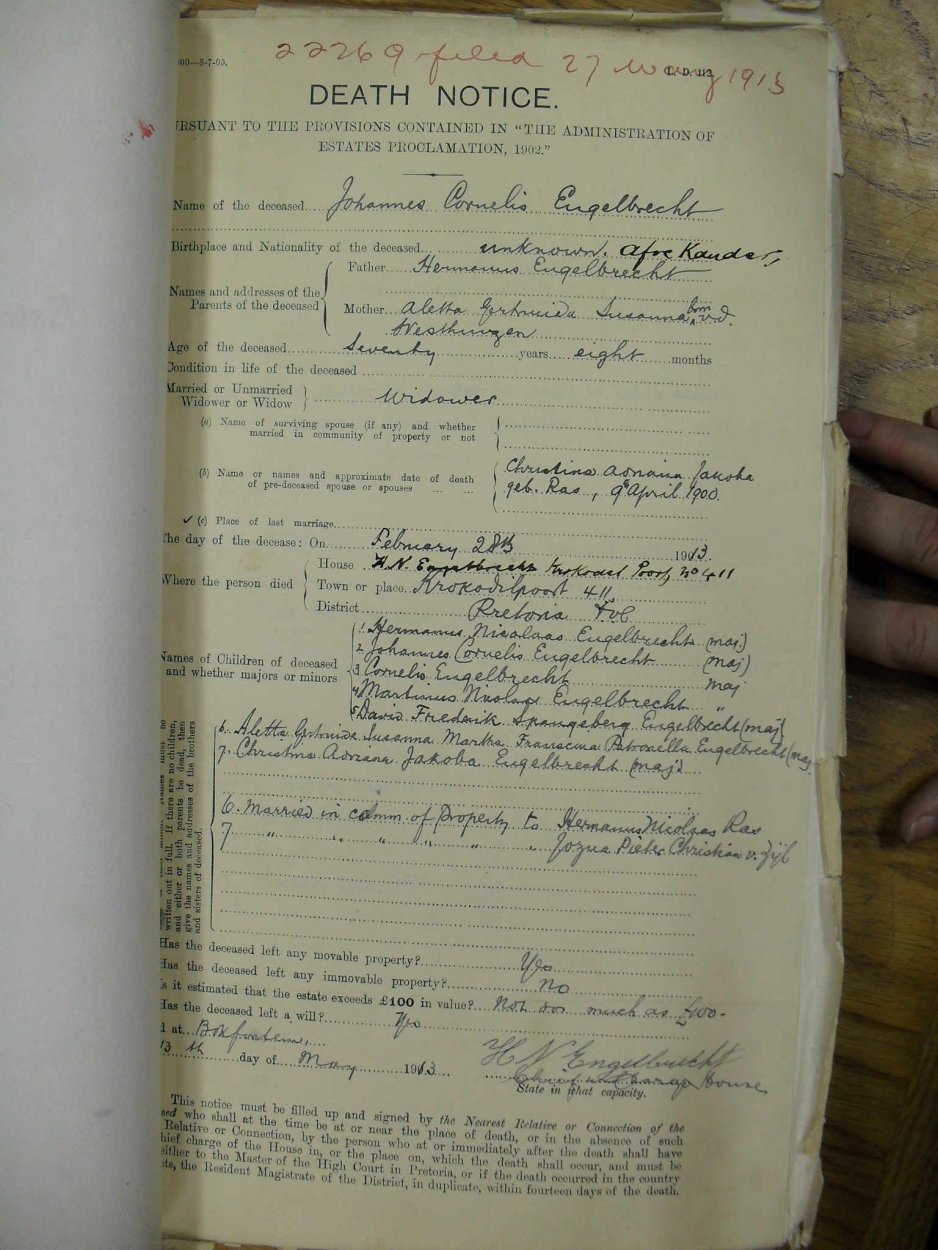 00—8-7-05.
22269 filed 27 May 1913
L. D. 112.
DEATH NOTICE.
RSUANT TO THE PROVISIONS CONTAINED IN "THE ADMINISTRATION OF
ESTATES PROCLAMATION, 1902."
Name of the deceased Johannes Cornelis Engelbrecht
Birthplace and Nationality of the deceased unknown. Afrikander,
Names and addresses of the Parents of the deceased
Father Hermanus Engelbrecht
Mother Aletta Gertruida Susanna born v.d.
Westhuizen
Age of the deceased Seventy years eight months
Condition in life of the deceased
Married or Unmarried
Widower or Widow Widower
(a) Name of surviving spouse (if any) and whether
married in community of property or not
(b) Name or names and approximate date of death
of pre-deceased spouse or spouses
Christina Adriana Jakoba
geb. Ras, 9th April 1900.
✓ (c) Place of last marriage
The day of the decease: On February 28th 1913.
Where the person died
House H.N. Engelbrecht Krokodil Poort No 411
Town or place Krokodilpoort 411
District Pretoria Tvl
Names of Children of deceased
and whether majors or minors
1. Hermanus Nicolaas Engelbrecht (maj)
2. Johannes Cornelis Engelbrecht (maj)
3 Cornelis Engelbrecht maj
4 Martinus Nicolaas Engelbrecht "
5 David Frederik Spangeberg Engelbrecht (maj)
written out in full. If there are no children,
and either or both parents be dead, then
give the names and addresses of the brothers
and sisters of deceased.
6. Aletta Gertruida Susanna Martha Francina Petronella Engelbrecht (maj
7. Christina Adriana Jakoba Engelbrecht (maj)
6. Married in comm of Property to Hermanus Nicolaas Ras
7 " " " " " " Jozua Pieter Christian v. Zijl
Has the deceased left any movable property? Yes
Has the deceased left any immovable property? No
Is it estimated that the estate exceeds £100 in value? Not so much as £100-
Has the deceased left a will? Yes
d at Bokfontein,
13 th day of May 1913.
H N Engelbrecht
Chief in Charge House
State in what capacity.
This notice must be filled up and signed by the Nearest Relative or Connection of the
sed who shall at the time be at or near the place of death, or in the absence of such
Relative or Connection, by the person who at or immediately after the death shall have
hief charge of the House in, or the place on, which the death shall occur, and must be
either to the Master of the High Court in Pretoria, or if the death occurred in the country
ts, the Resident Magistrate of the District, in duplicate, within fourteen days of the death.